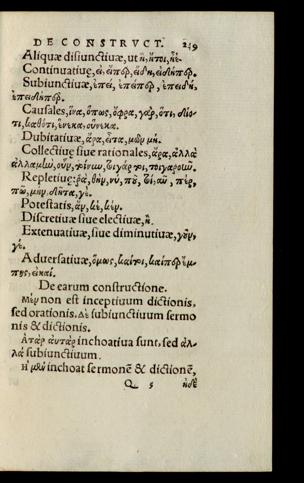 DE CONSTRVCT. 249
Aliquæ disiunctiuæ, ut ἢ, ἤτοι, ἠέ.
Continuatiuę, εἰ, εἴπερ, εἰδὴ, εἰδήπερ.
Subiunctiuæ, ἐπεὶ, ἐπείπερ, ἐπειδὴ,
ἐπειδήπερ.
Causales, ἵνα, ὅπως, ὄφρα, γὰρ, ὅτι, διό-
τι, καθότι, ἕνεκα, οὕνεκα.
Dubitatiuæ, ἆρα, εἶτα, μῶν μή.
Collectiuę siue rationales, ἄρα, ἀλλὰ
ἀλλαμὴν, οὖν, τοίνυν, τοιγάρτοι, τοιγαροῦν.
Repletiuę: ῥὰ, θὴν, νὺ, ποῦ, τοὶ, αὖ, πὲρ,
πῶ, μὴν, δῆτα, γέ.
Potestatis, ἂν, κὲ, κέν.
Discretiuæ siue electiuæ, ἤ.
Extenuatiuæ, siue diminutiuæ, γοῦν,
γέ.
Aduersatiuæ, ὅμως, καίτοι, καίπερ ἔμ-
πης, εἰκαί.
De earum constructione.
Μὲν non est inceptiuum dictionis,
sed orationis. Δὲ subiunctiuum sermo
nis & dictionis.
Ἀτὰρ αὐτὰρ inchoatiua sunt, sed ἀλ-
λὰ subiunctiuum.
Ἡ μὲν inchoat sermonē & dictionē,
Q 5 ἠδὲ